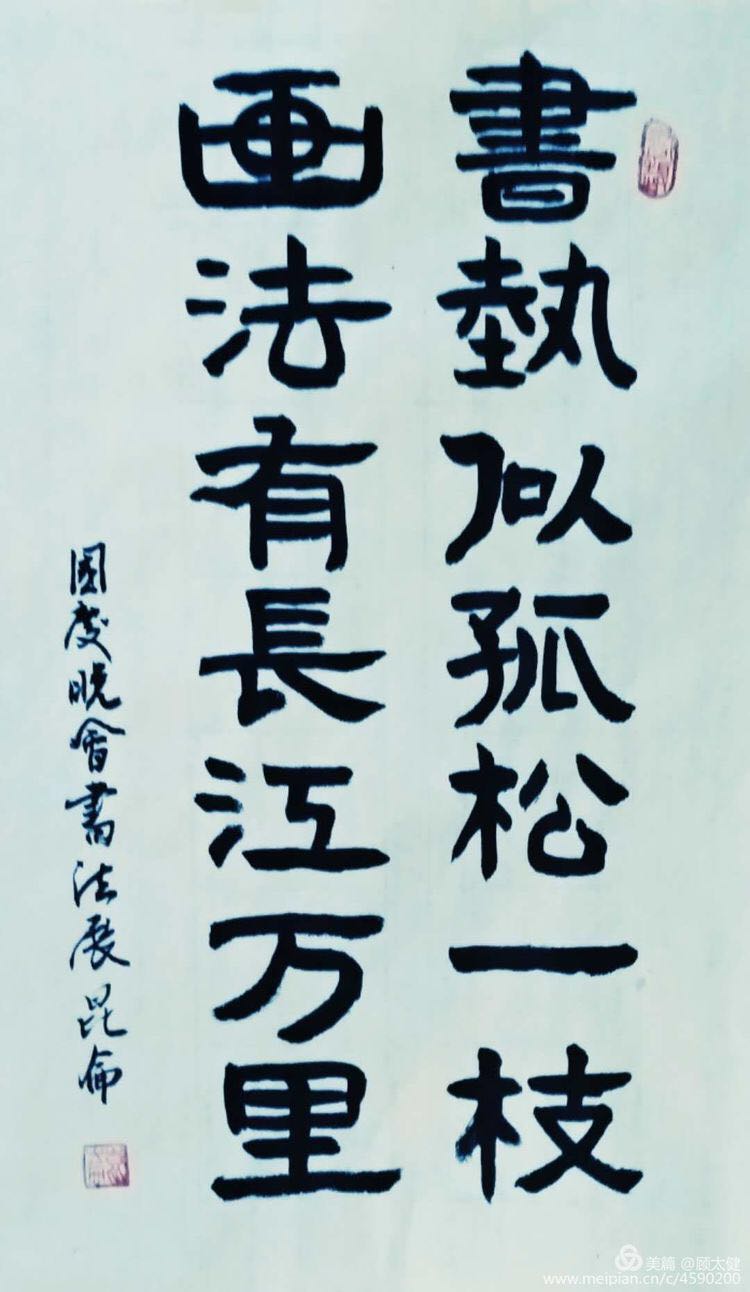 書埶似孤松一枝
画法有長江万里
國慶晚會書法展昆侖
美篇 @顾太健
www.meipian.cn/c/4590200